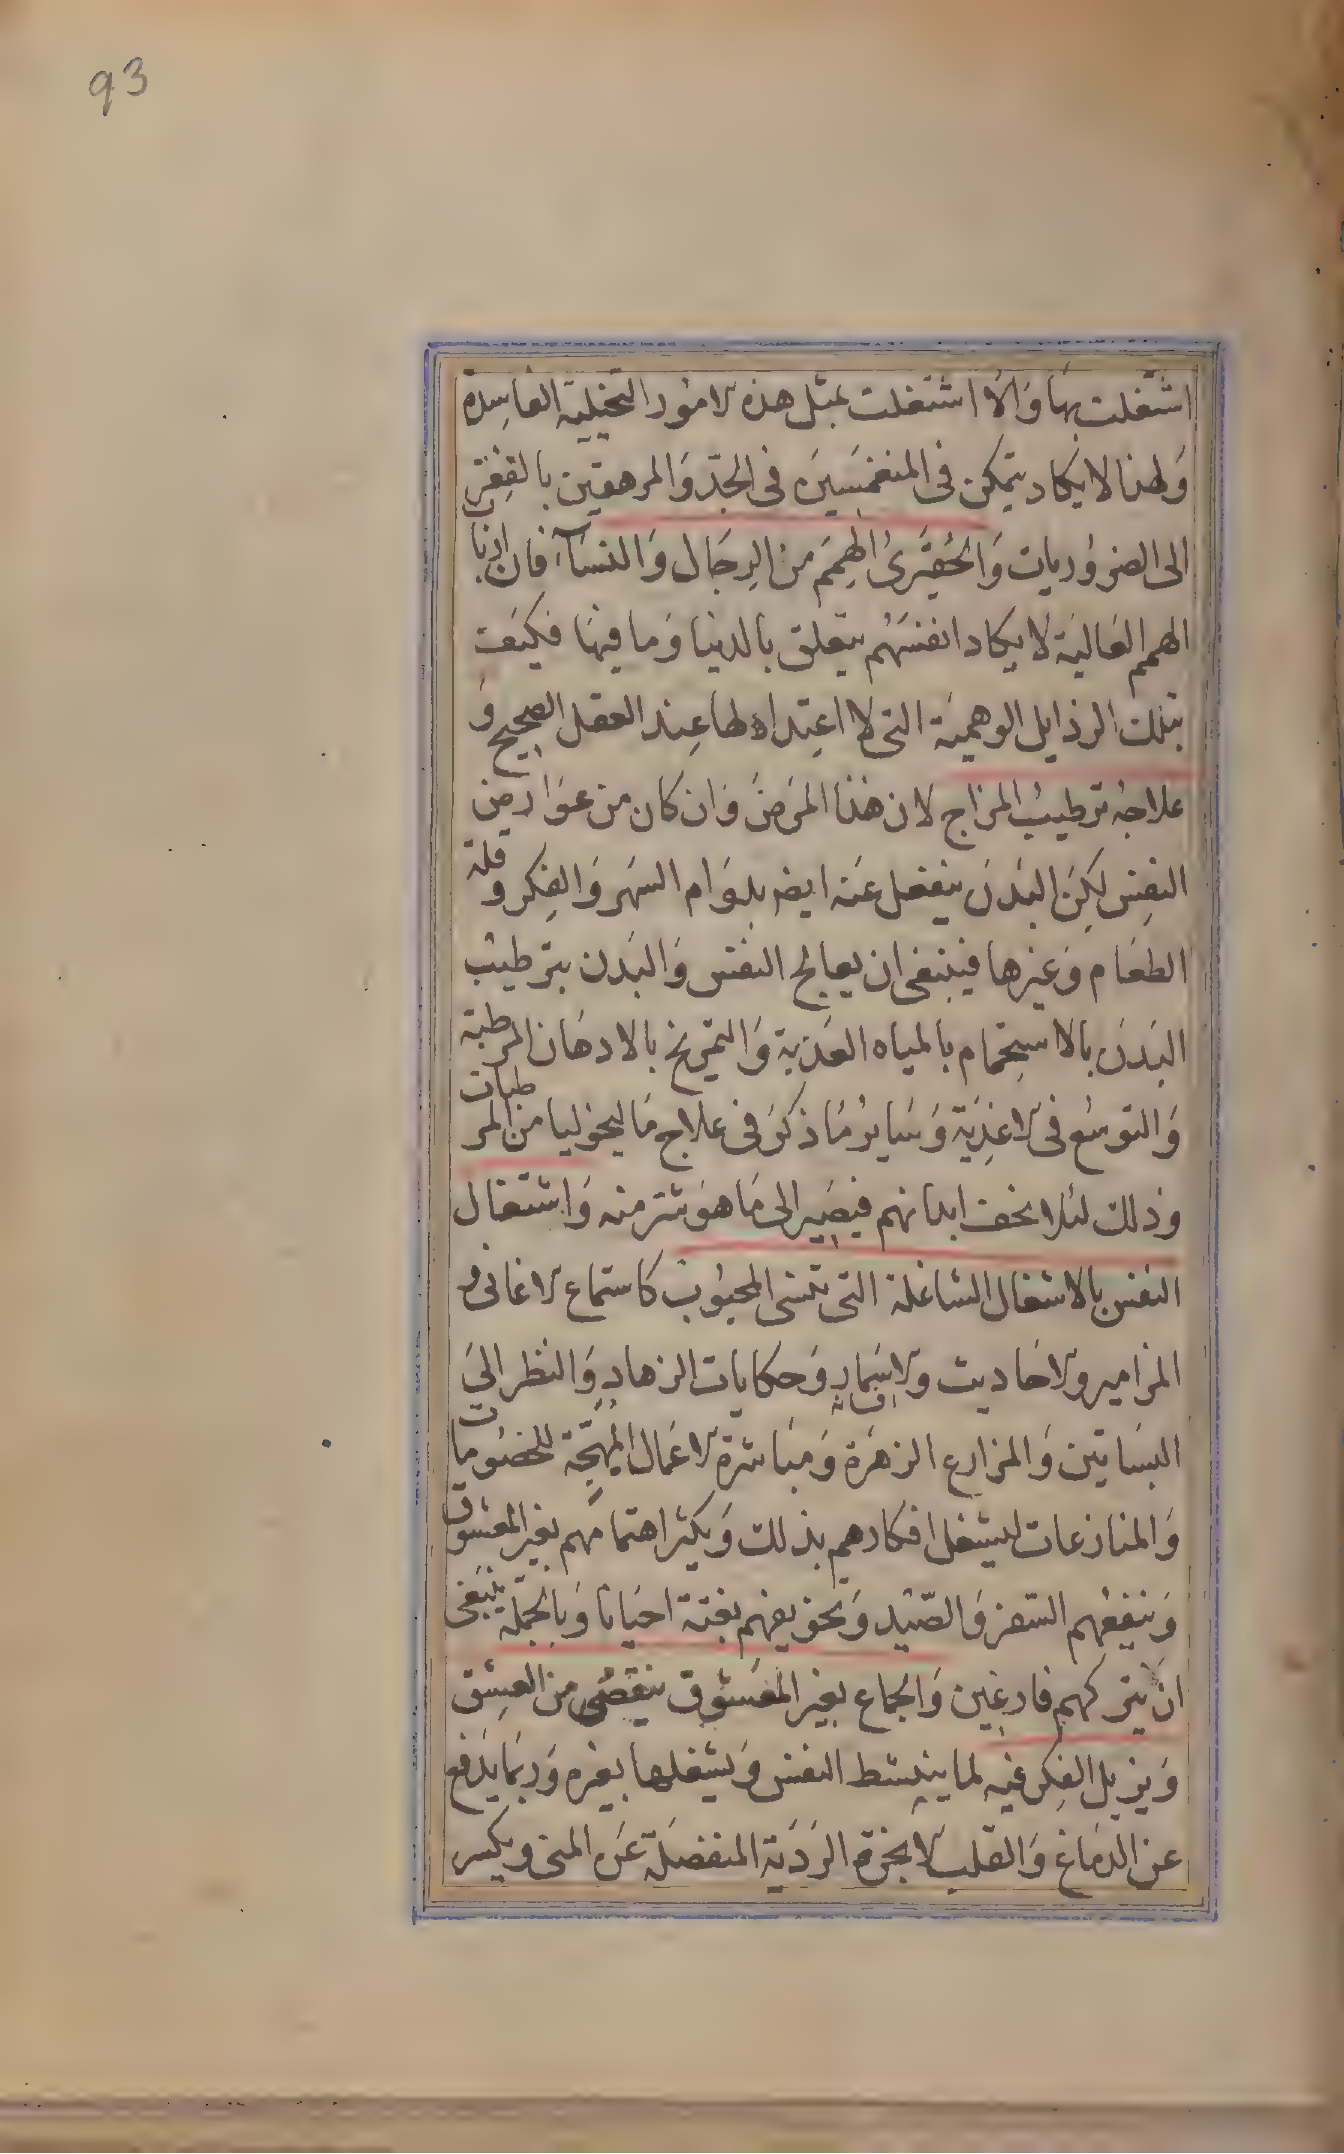 93
اشتغلت بها والا اشتغلت بمثل هذه الامور التخيلية الفاسدة
ولهذا لا يكاد يتمكن فى المنغمسين فى الجد والمرهقين بالفقر
الى الضروريات والحقيرى الهمم من الرجال والنسآء فان ارباب
الهمم العالية لا يكاد انفسهم يتعلق بالدنيا وما فيها فكيف
بتلك الرذايل الوهمية التى لا اعتداد لها عند العقل الصحيح و
علاجه ترطيب المزاج لان هذا المرض وان كان من عوارض
النفس لكن البدن ينفعل عنه ايضا بدوام السهر والفكر وقلة
الطعام وغيرها فينبغى ان يعالج النفس والبدن بترطيب
البدن بالاستحمام بالمياه العذبة والتمريخ بالادهان المرطبة
والتوسع فى الاغذية وساير ما ذكر فى علاج ماليخوليا من المرطبات
وذلك لئلا يخف ابدانهم فيصير الى ما هو شر منه واشتغال
النفس بالاشغال الشاغلة التى تنسى المحبوب كاستماع الاغانى و
المزامير والاحاديث والاسمار وحكايات الزهاد والنظر الى
البساتين والمزارع الزهرة ومباشرة الاعمال المهيجة للخصومات
والمنازعات ليشغل افكارهم بذلك ويكثر اهتمامهم بغير المعشوق
وينفعهم السفر والصيد وتخويفهم بغتة احيانا وبالجملة ينبغى
ان يتركهم فارغين والجماع بغير المعشوق ينقص من العشق
ويزيل الفكر فيه لما ينشط النفس ويشغلها بغيره وربما يدفع
عن الدماغ والقلب الابخرة الردية المنفصلة عن المنى ويكسر